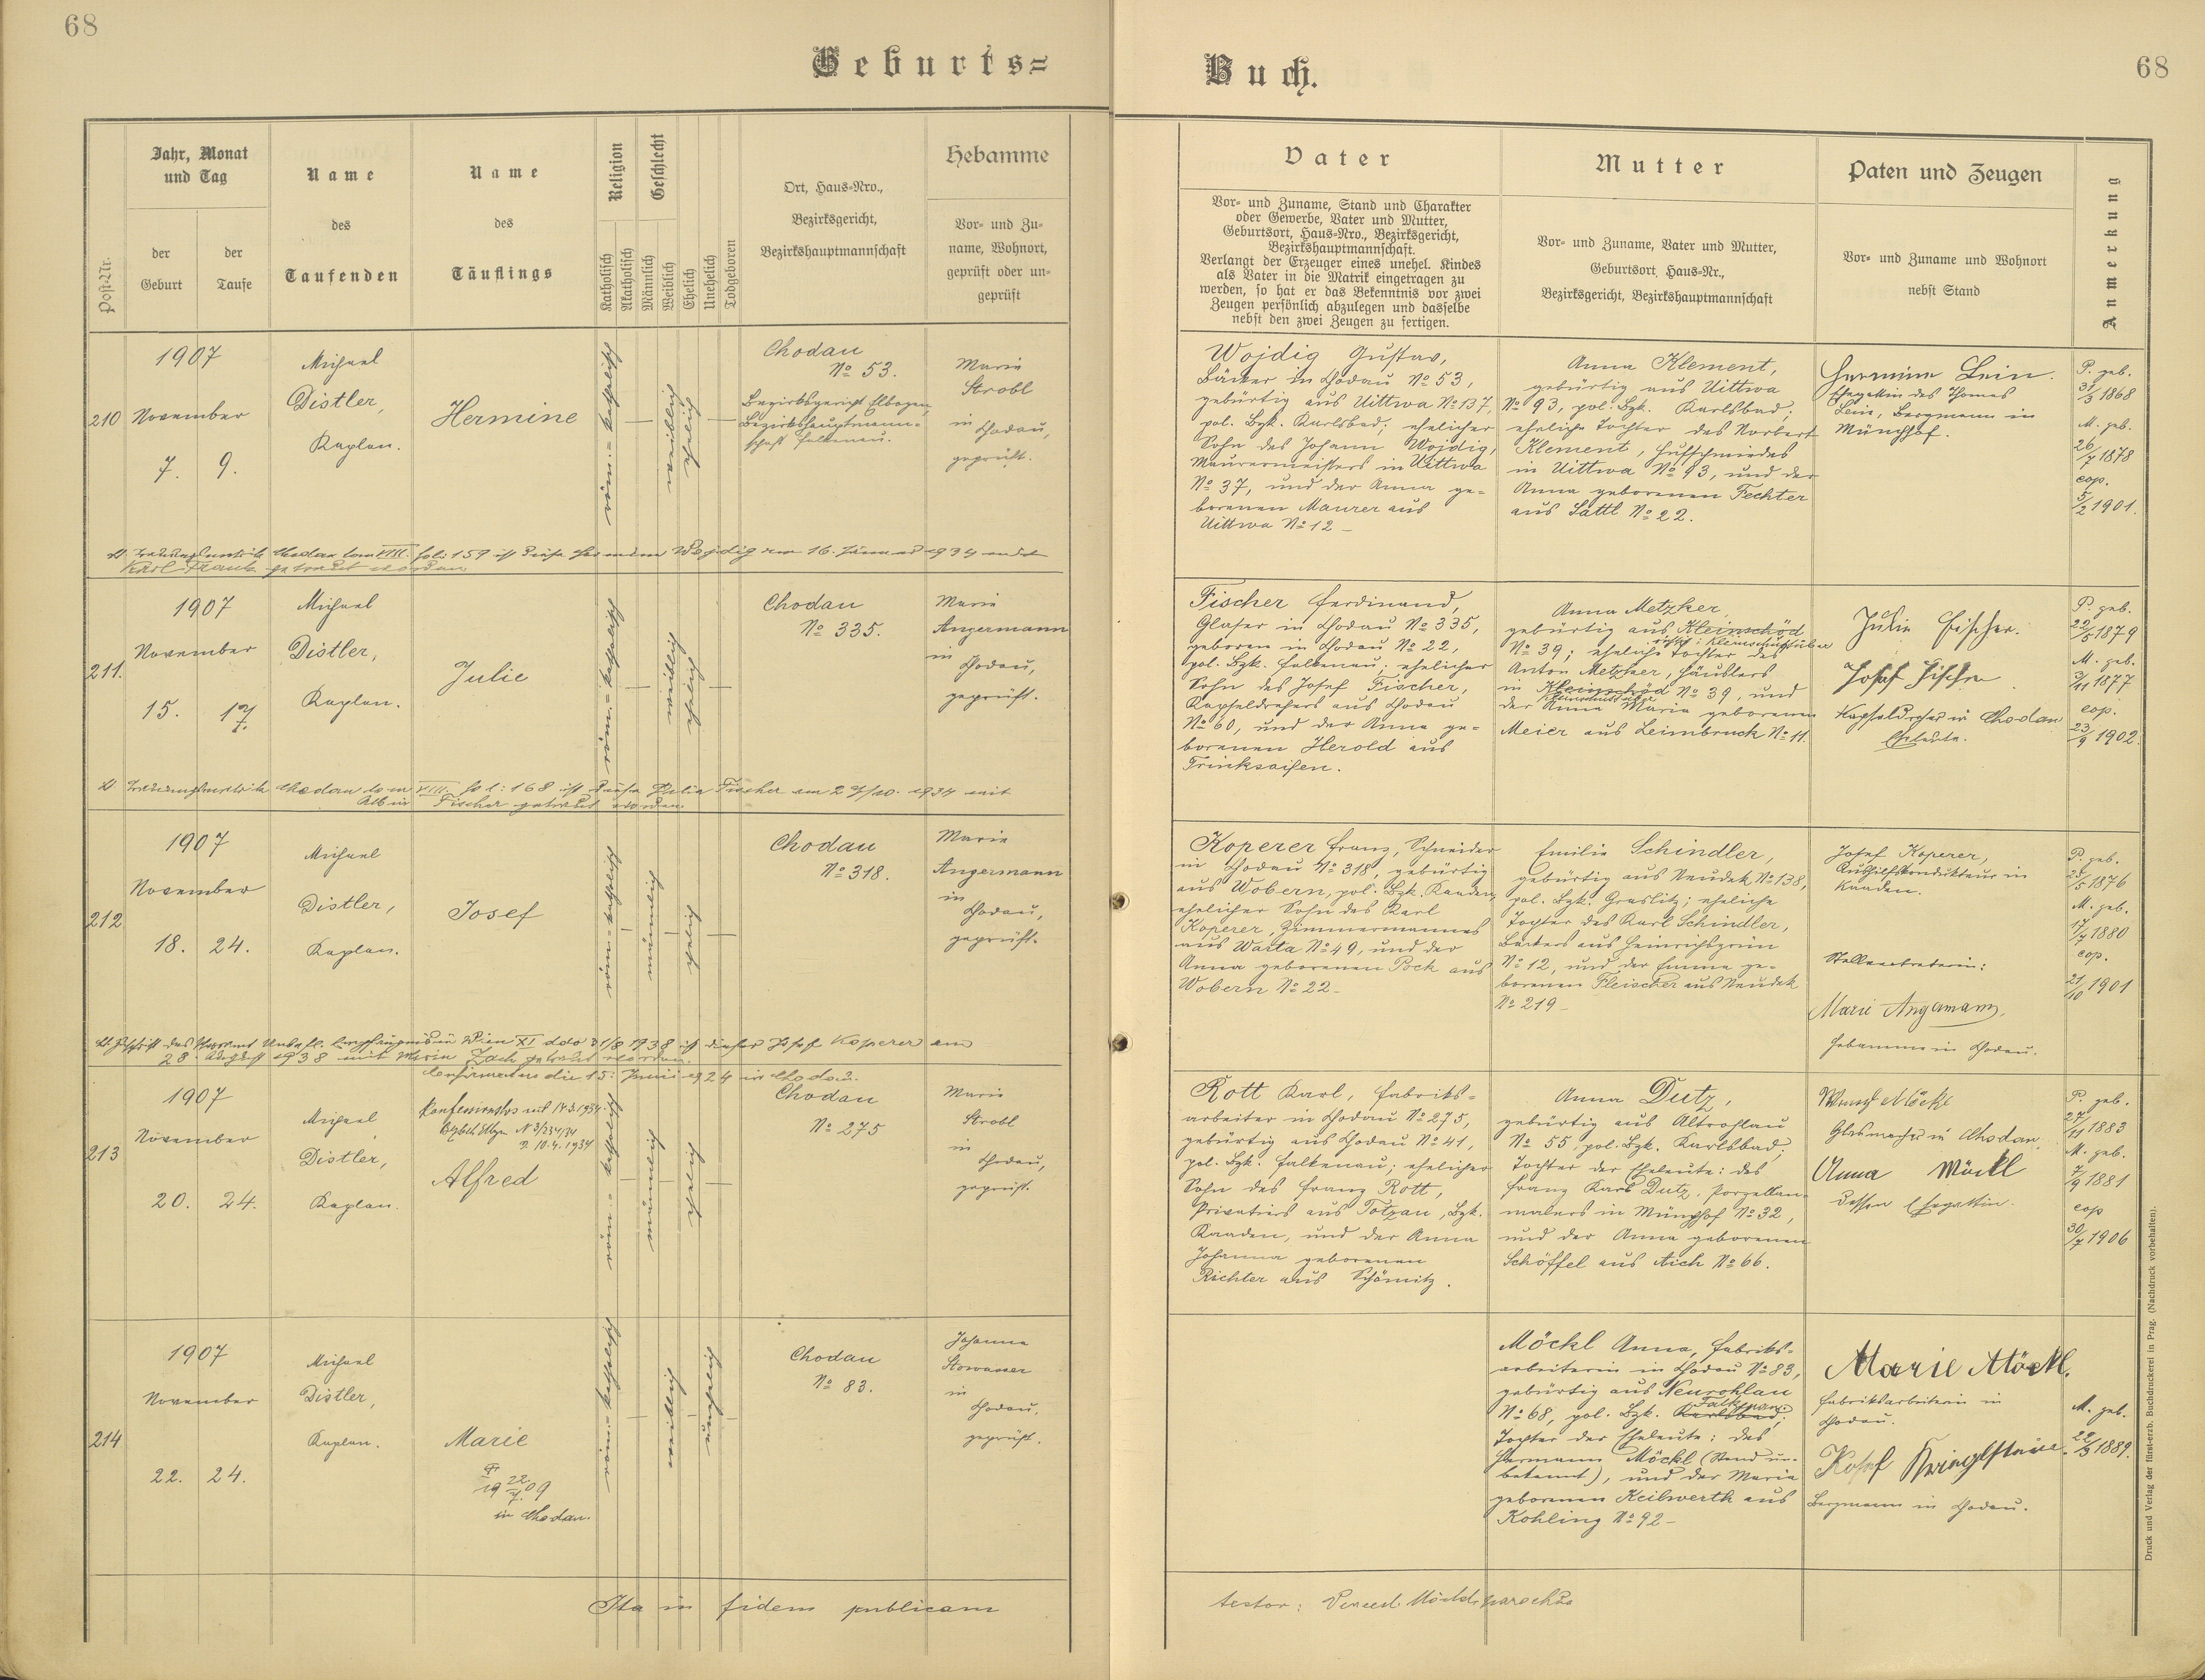 68
Geburts=
Jahr, Monat
und Tag
Name
des
Taufenden
Name
des
Täuflings
Religion
Geschlecht
Ort, Haus=Nro.,
Bezirksgericht,
Bezirkshauptmannschaft
Hebamme
Vor= und Zu=
name, Wohnort,
geprüft oder un=
geprüft
Post=Nr.
der
Geburt
der
Taufe
Katholisch
Akatholisch
Männlich
Weiblich
Ehelich
Unehelich
Todgeboren
210
1907
November
7. 9.
Michael
Distler,
Kaplan.
Hermine
röm.=katholisch
weiblich
ehelich
Chodau
No 53.
Bezirksgericht Elbogen,
Bezirkshauptmann=
schaft Falkenau.
Marie
Strobl
in
Chodau,
geprüft.
Lt. Trauungsmatrik Chodau tom VIII. fol: 159 ist diese Hermine Wojdig am 16. Jänner 1934 mit
Karl Frank getraut worden
211.
1907
November
15. 17.
Michael
Distler,
Kaplan.
Julie
röm.=katholisch
weiblich
ehelich
Chodau
No 335.
Marie
Angermann
in
Chodau,
geprüft.
Lt. Trauungsmatrik Chodau tom VIII. fol: 168 ist diese Julie Fischer am 27/10. 1934 mit
Albin Fischer getraut worden
212
1907
November
18. 24.
Michael
Distler,
Kaplan.
Josef
röm.=katholisch
männlich
ehelich
Chodau
No 318.
Marie
Angermann
in
Chodau,
geprüft.
Lt. Zuschrift des Pfarramt Unbefl. Empfängnis in Wien XI ddo 31/8 1938 ist dieser Josef Koperer am
28. August 1938 mit Maria Zach getraut worden.
Confirmatus die 15. Juni 1924 in Chodau.
213
1907
November
20. 24.
Michael
Distler,
Kaplan.
Konfessionslos seit 14.3.1934.
Elbgn N 3/234/34
10.4.1934
Alfred
röm.=katholisch
männlich
ehelich
Chodau
No 275
Marie
Strobl
in
Chodau,
geprüft.
214
1907
November
22. 24.
Michael
Distler,
Kaplan.
Marie
† 22.
1909
7.
in Chodau.
röm.=katholisch
weiblich
unehelich
Chodau
No 83.
Johanna
Stowasser
in
Chodau,
geprüft.
Ita in fidem publicam
68
Buch.
Vater
Vor= und Zuname, Stand und Charakter
oder Gewerbe, Vater und Mutter,
Geburtsort, Haus=Nro., Bezirksgericht,
Bezirkshauptmannschaft.
Verlangt der Erzeuger eines unehel. Kindes
als Vater in die Matrik eingetragen zu
werden, so hat er das Bekenntnis vor zwei
Zeugen persönlich abzulegen und dasselbe
nebst den zwei Zeugen zu fertigen.
Mutter
Vor= und Zuname, Vater und Mutter,
Geburtsort, Haus=Nr.,
Bezirksgericht, Bezirkshauptmannschaft
Paten und Zeugen
Vor= und Zuname und Wohnort
nebst Stand
Anmerkung
Wojdig Gustav,
Bäcker in Chodau No 53,
gebürtig aus Uittwa No 137,
pol. Bzk. Karlsbad; ehelicher
Sohn des Johann Wojdig,
Maurermeisters in Uittwa
No 37, und der Anna ge=
borenen Maurer aus
Uittwa No 12
Anna Klement,
gebürtig aus Uittwa
No 93, pol. Bzk. Karlsbad;
eheliche Tochter des Norbert
Klement, Hufschmiedes
in Uittwa No 93, und der
Anna geborenen Fechter
aus Sattl No 22.
Hermine Lein.
Ehegattin des Thomas
Lein, Bergmann in
Münchhof.
P. geb.
31/3 1868
M. geb.
26/7 1878
cop.
5/2 1901.
Fischer Ferdinand,
Glaser in Chodau No 335,
geboren in Chodau No 22,
pol. Bzk. Falkenau; ehelicher
Sohn des Josef Fischer,
Kapseldrehers aus Chodau
No 60, und der Anna ge=
borenen Herold aus
Trinksaifen.
Anna Metzker,
gebürtig aus Kleinschöd
No 39; eheliche Tochter des
Anton Metzker, Häuslers
in Kleinschöd No 39, und
der Anna Maria geborenen
Meier aus Leimbruck No 11.
Julie Fischer.
Josef Fischer
Kapseldreher in Chodau
Eheleute.
P. geb.
22/5 1879
M. geb.
3/11 1877
cop.
23/9 1902.
Koperer Franz, Schneider
in Chodau No 318, gebürtig
aus Wobern, pol. Bzk. Kaaden,
ehelicher Sohn des Karl
Koperer, Zimmermannes
aus Warta No 49, und der
Anna geborenen Pock aus
Wobern No 22
Emilie Schindler,
gebürtig aus Neudek No 138,
pol. Bzk. Graslitz; eheliche
Tochter des Karl Schindler,
Bäckers aus Heinrichsgrün
No 12, und der Emma ge=
borenen Fleischer aus Neudek
No 219
Josef Koperer,
Aushilfskondukteur in
Kaaden.
Stellvertreterin:
Marie Angermann,
Hebamme in Chodau.
P. geb.
28/5 1876
M. geb.
17/7 1880
cop.
21/10 1901
Rott Karl, Fabriks=
arbeiter in Chodau No 275,
gebürtig aus Chodau No 41,
pol. Bzk. Falkenau; ehelicher
Sohn des Franz Rott,
Privatiers aus Totzau, Bzk.
Kaaden, und der Anna
Johanna geborenen
Richter aus Schömitz.
Anna Dutz,
gebürtig aus Altrohlau
No 55, pol. Bzk. Karlsbad;
Tochter der Eheleute: des
Franz Karl Dutz, Porzellan=
malers in Münchhof No 32,
und der Anna geborenen
Schöffel aus Aich No 66.
Wenzl Möckl
Glasmacher in Chodau
Anna Möckl
dessen Ehegattin.
P. geb.
27/11 1883
M. geb.
7/9 1881
cop
30/7 1906
Möckl Anna, Fabriks=
arbeiterin in Chodau No 83,
gebürtig aus Neurohlau
Falkenau.
No 68, pol. Bzk. Karlsbad;
Tochter der Eheleute: des
Hermann Möckl (Stand un=
bekannt), und der Maria
geborenen Keilwerth aus
Kohling No 92
Marie Möckl.
Fabriksarbeiterin in
Chodau.
Josef
Bergmann in Chodau.
M. geb.
22/3 1889.
testor: Vencesl. Möckl, parochus
Druck und Verlag der fürst-erzb. Buchdruckerei in Prag. (Nachdruck vorbehalten).